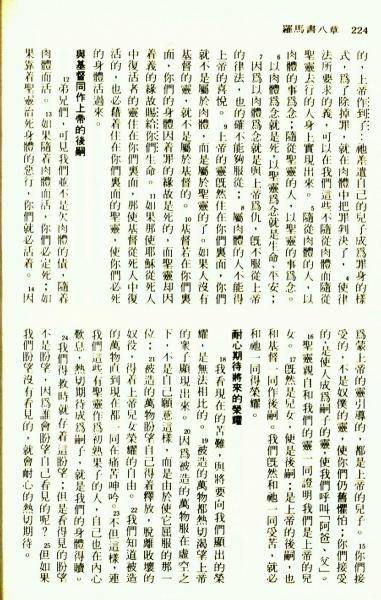 羅馬書八章 224
的，上帝作到了：祂差遣自己的兒子成爲罪身的樣
式，爲了除掉罪，就在肉體中把罪判決了，4使律
法所要求的義，可以在我們這些不隨從肉體而隨從
聖靈去行的人身上實現出來。5隨從肉體的人，以
肉體的事爲念；隨從聖靈的人，以聖靈的事爲念。
6以肉體爲念就是死；以聖靈爲念就是生命、平安；
7因爲以肉體爲念就是與上帝爲仇，旣不服從上帝
的律法，也的確不能夠服從；8屬肉體的人不能得
上帝的喜悅。9上帝的靈旣然住在你們裏面，你們
就不是屬於肉體，而是屬於聖靈的了。如果人沒有
基督的靈，就不是屬於基督的。10基督若在你們裏
面，你們的身體因着罪的緣故是死的，而聖靈却因
着義的緣故賜給你們生命。11如果那使耶穌從死人
中復活者的靈住在你們裏面，那使基督從死人中復
活的，也必藉着住在你們裏面的聖靈，使你們必死
的身體活過來。
與基督同作上帝的後嗣
12弟兄們，可見我們並不是欠肉體的債、隨着
肉體而活。13如果隨着肉體而活，你們必定死；如
果靠着聖靈治死身體的惡行，你們就必活着。14因
爲蒙上帝的靈引導的，都是上帝的兒子。15你們接
受的，不是奴僕的靈，使你們仍舊懼怕；你們接受
的，是使人成爲嗣子的靈，使我們呼叫「阿爸、父」。
16聖靈親自和我們的靈一同證明我們是上帝的兒
女。17旣然是兒女，便是後嗣；是上帝的後嗣，也
和基督一同作後嗣。我們旣然和祂一同受苦，就必
和祂一同得榮耀。
耐心期待將來的榮耀
18我看現在的苦難，與將要向我們顯出的榮
耀，是無法相比的。19被造的萬物都熱切渴望上帝
的衆子顯現出來。20因爲被造的萬物服在虛空之
下，不是自己願意這樣，而是由於使它屈服的那一
位；21被造的萬物盼望自己得着釋放，脫離敗壞的
奴役，得着上帝兒女榮耀的自由。22我們知道被造
的萬物直到現在都一同在痛苦呻吟。23不但這樣，連
我們這些有聖靈作爲初熟果子的人，自己也在內心
歎息，熱切期待成爲嗣子，就是我們的身體得贖。
24我們得救時就存着這盼望；但是看得見的盼望
不是盼望，因爲誰會盼望自己看見的呢？25但如果
我們盼望沒有看見的，就會耐心的熱切期待。